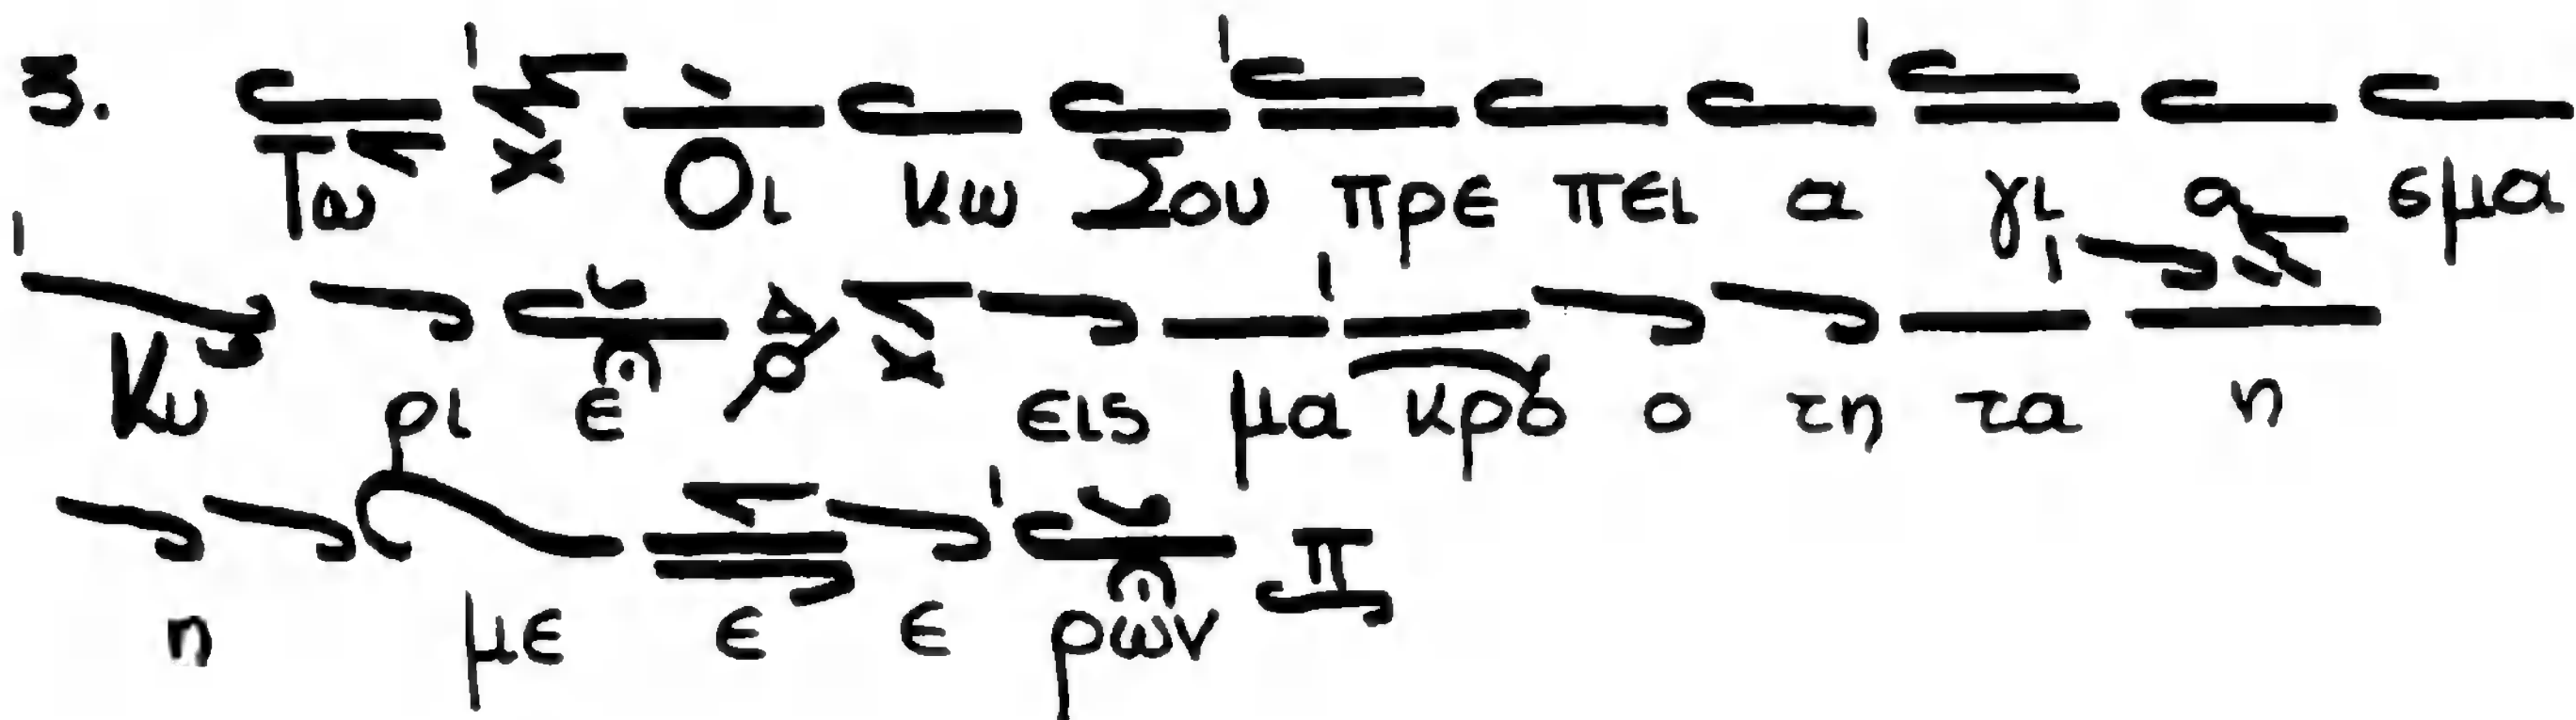 3. Τω Οι κω Σου πρε πει α γι α σμα
Κυ ρι ε εις μα κρο ο τη τα η
η με ε ε ρων